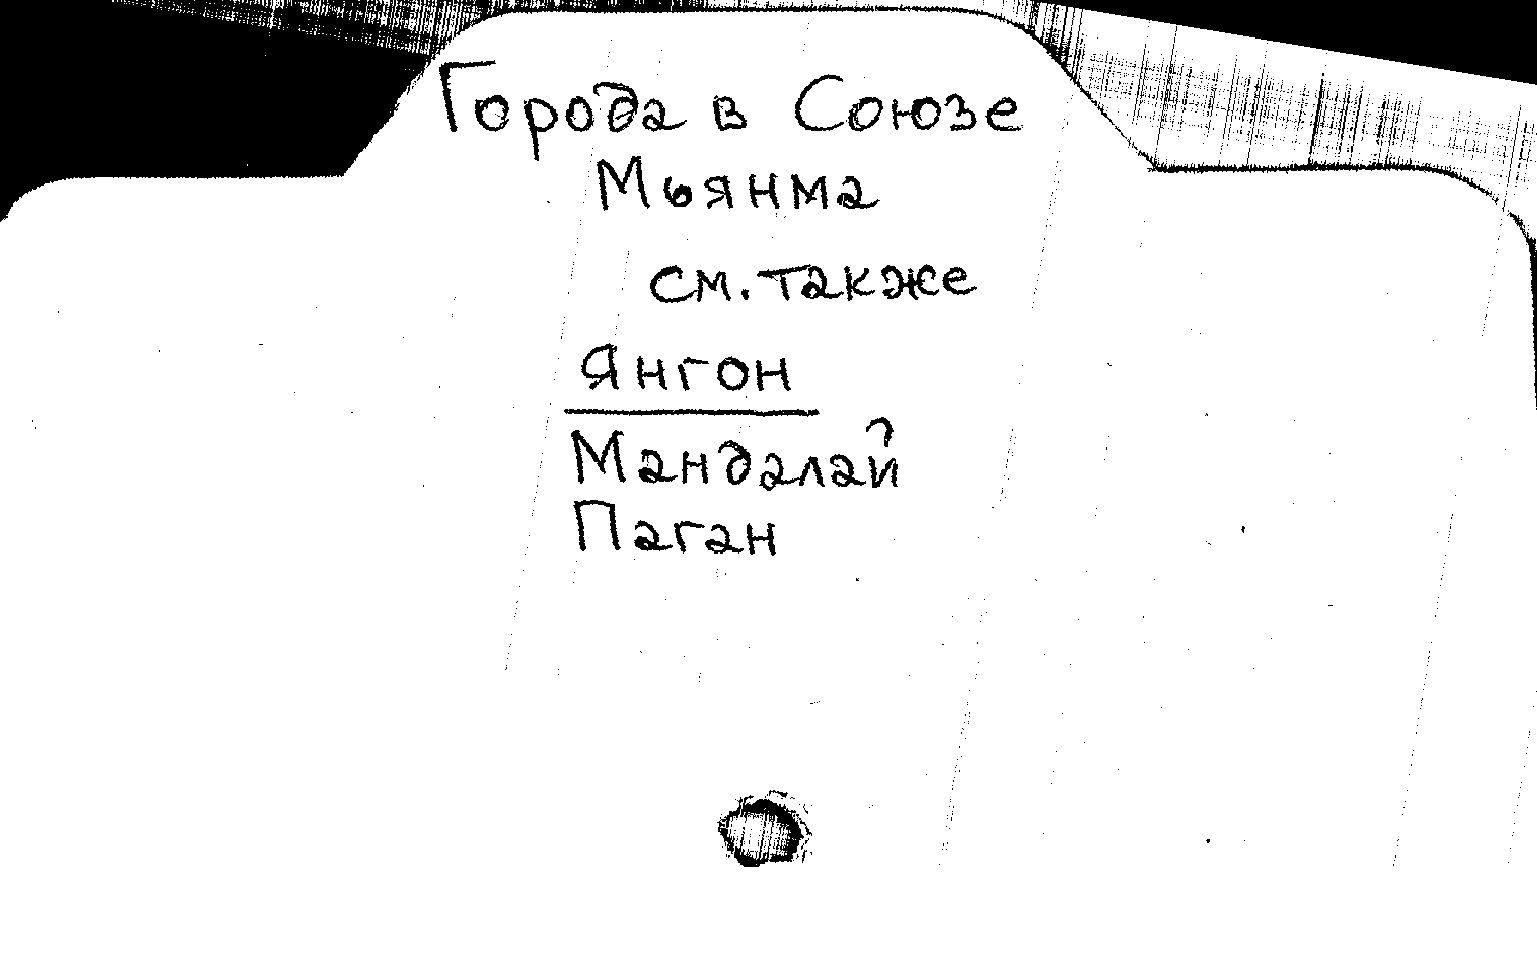 Города в Союзе
Мьянма
см. также
Янгон
Мандалай
Паган